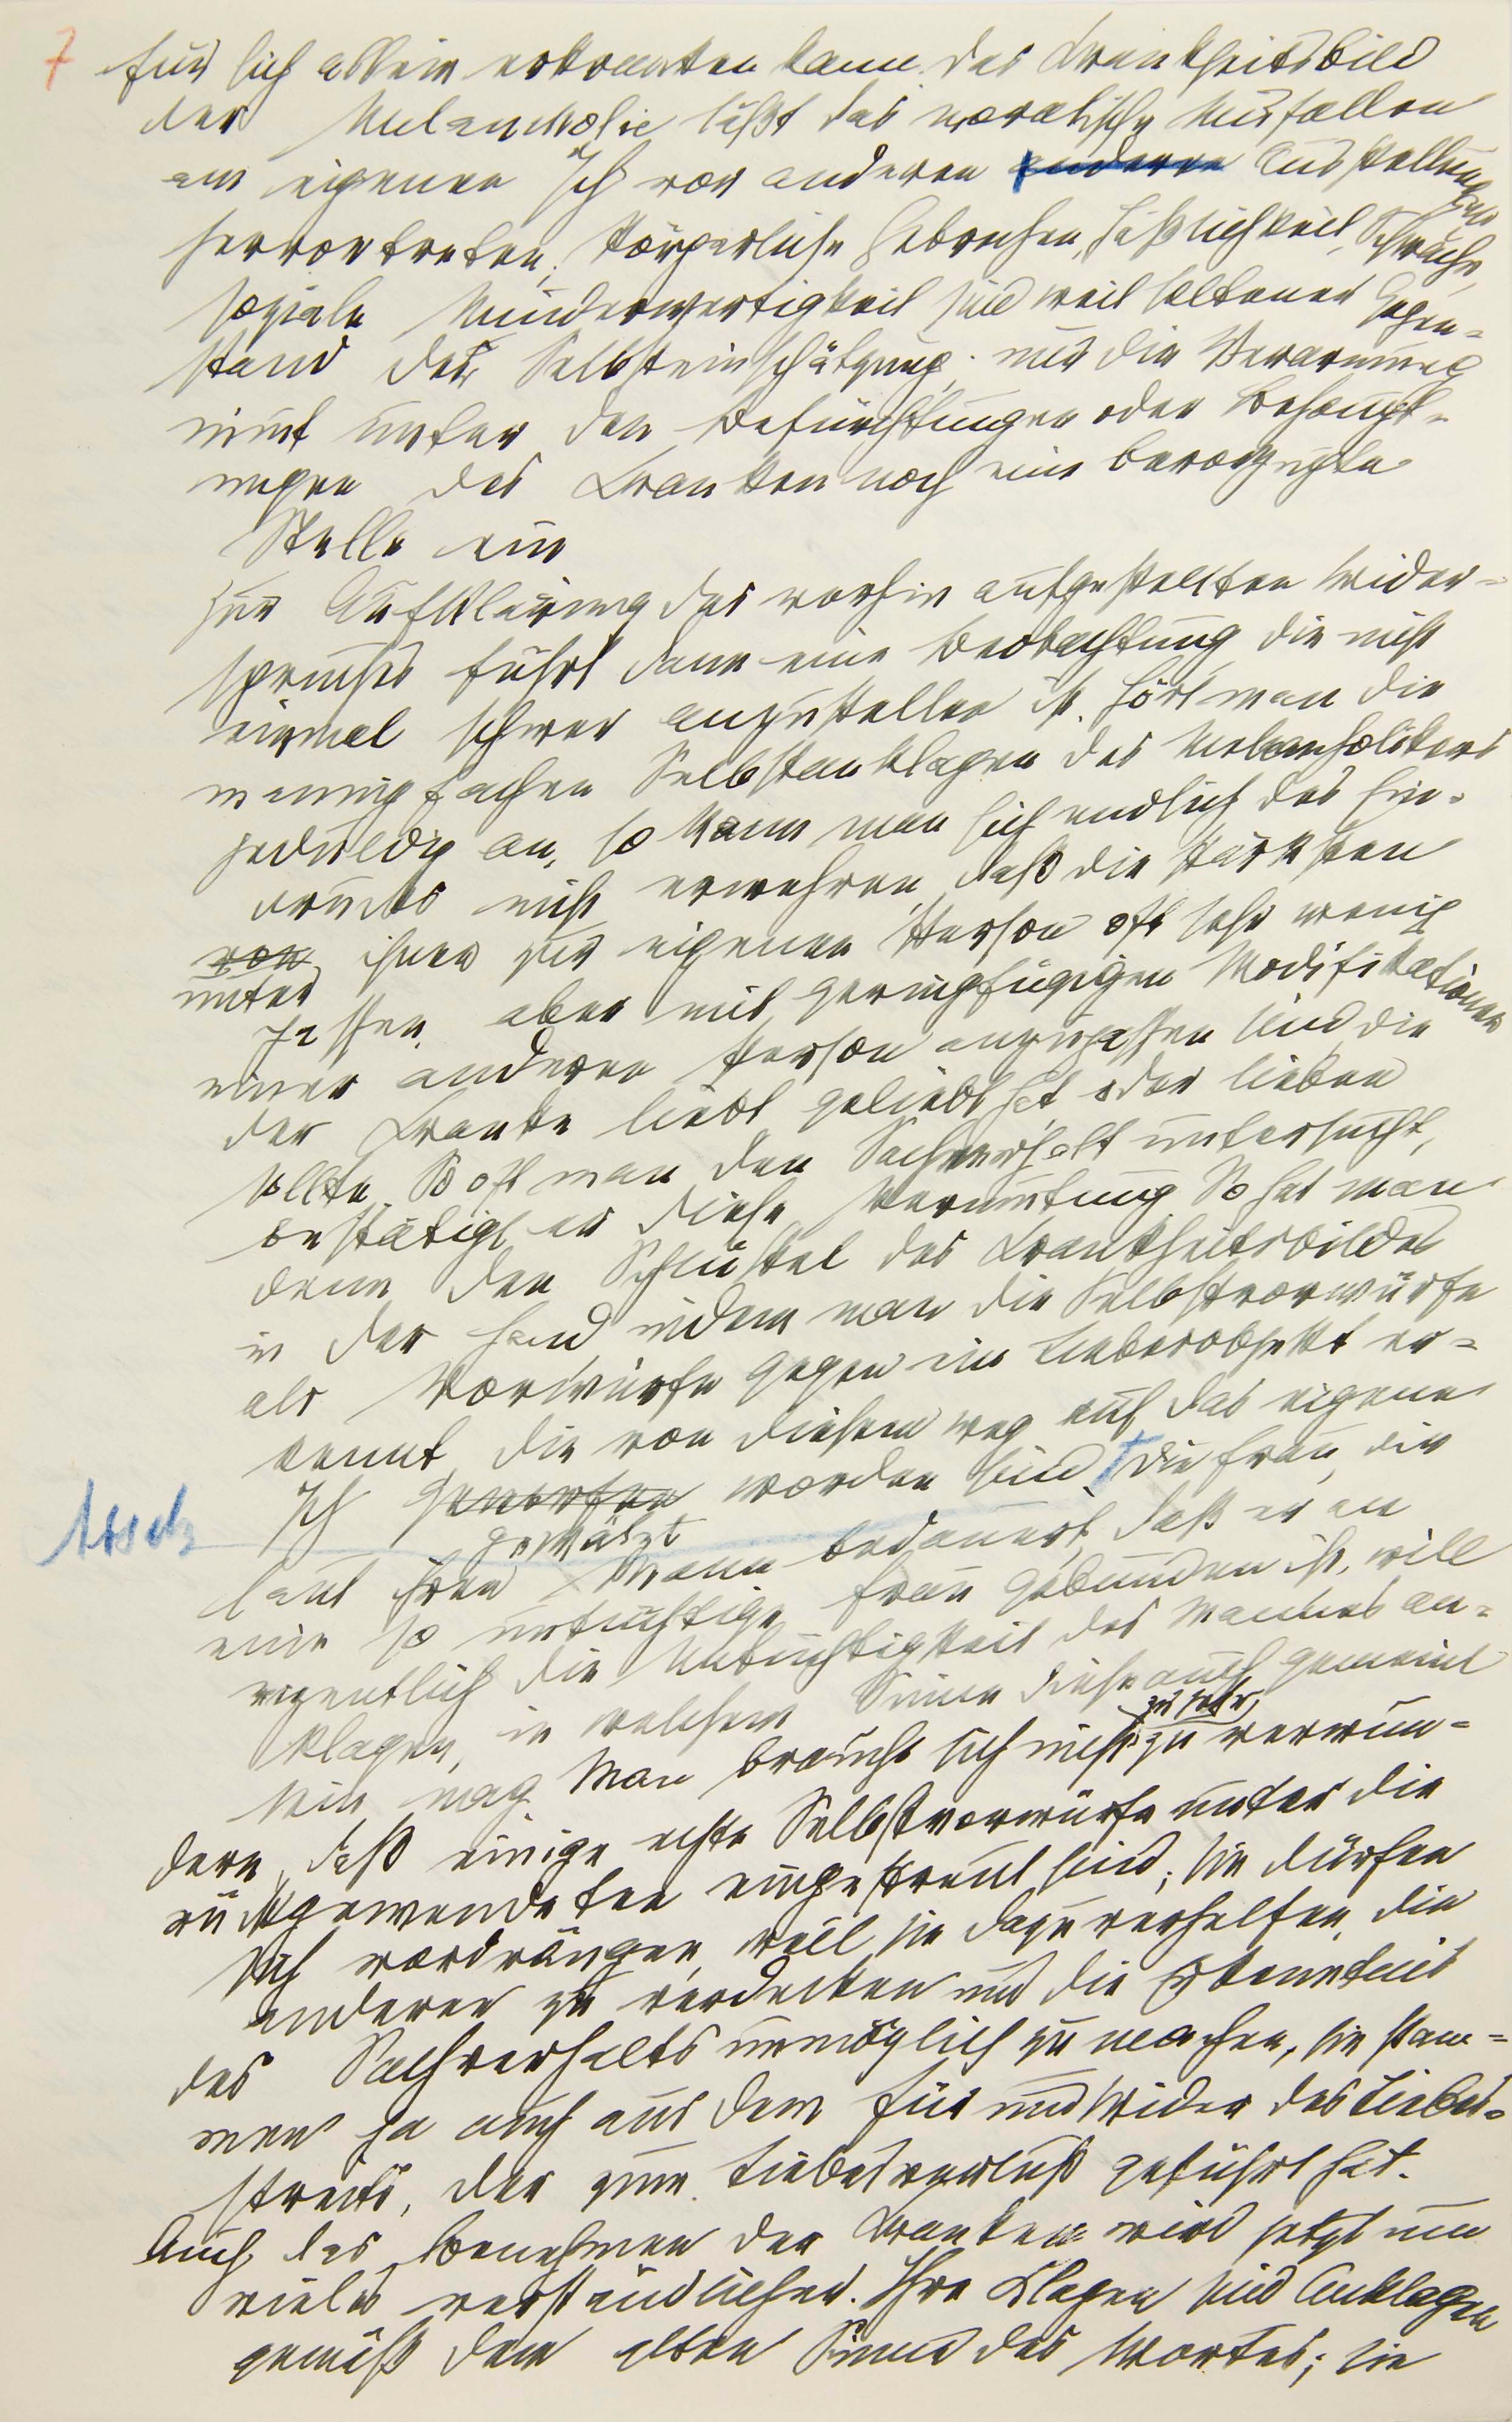 7 für sich allein erkranken kann. Das Krankheitsbild
der Melancholie läßt das moralische Mißfallen
am eigenen Ich vor anderen anderen Ausstellungen
hervortreten, körperliche Gebrechen, Häßlichkeit, Schwäche,
soziale Minderwertigkeit sind weit seltener Gegen=
stand der Selbsteinschätzung; nur die Verarmung
nimt unter den Befürchtungen oder Behaupt=
ungen des Kranken noch eine bevorzugte
Stelle ein
Zur Aufklärung des vorhin aufgestellten Wider=
spruches führt dann eine Beobachtung, die nicht
einmal schwer anzustellen ist. Hört man die
mannigfachen Selbstanklagen des Melancholikers
geduldig an, so kann man sich endlich des Ein=
drucks nicht erwehren, daß die stärksten
von ihnen zur eigenen Person oft sehr wenig
unter
passen, aber mit geringfügigen Modifikationen
einer anderen Person anzupassen sind, die
der Kranke liebt, geliebt hat, oder lieben
sollte. So oft man den Sachverhalt untersucht,
bestätigt er diese Vermutung So hat man
denn den Schlüssel des Krankheitsbildes
in der Hand, indem man die Selbstvorwürfe
als Vorwürfe gegen ein Liebesobjekt er=
kennt, die von diesem weg auf das eigene
Ich geworfen worden sind. † Die Frau, die
Absatz
gewälzt
laut ihren Mann bedauert, daß er an
eine so untüchtige Frau gebunden ist, will
eigentlich die Untüchtigkeit des Mannes an=
klagen, in welchem Sinne diese auch gemeint
zu sehr,
sein mag. Man braucht sich nicht zu verwun=
dern, daß einige echte Selbstvorwürfe unter die
rückgewendeten eingestreut sind; sie dürfen
sich vordrängen, weil sie dazu verhelfen, die
anderen zu verdecken und die Erkenntnis
des Sachverhalts unmöglich zu machen, sie stam=
men ja auch aus dem Für und Wider des Liebes=
streits, der zum Liebesverlust geführt hat.
Auch das Benehmen der Kranken wird jetzt um
vieles verständlicher. Ihre Klagen sind Anklagen
gemäß dem alten Sinne des Wortes; sie